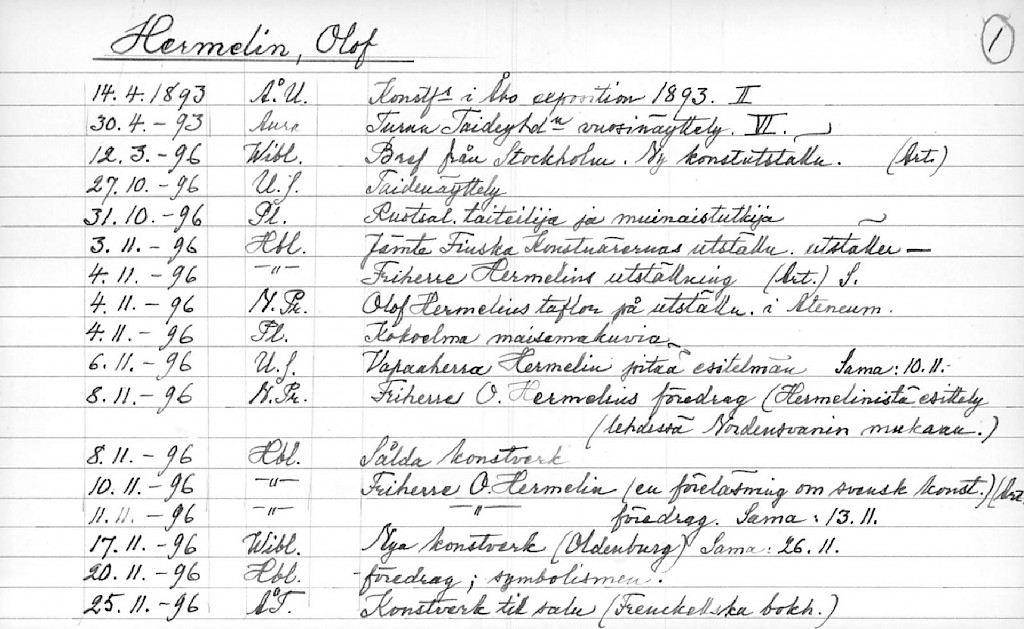 Hermelin, Olof 1
14.4.1893 Å.U. Konstf:s i Åbo exposition 1893. II
30.4.-93 Aura Turun Taideyhd:n vuosinäyttely. VI.
12.3.-96 Wibl. Bref från Stockholm. Ny konstutställn. (Art.)
27.10.-96 U.S. Taidenäyttely
31.10.-96 Pl. Ruotsal. taiteilija ja muinaistutkija
3.11.-96 Hbl. Jämte Finska Konstnärernas utställn. utställer —
4.11.-96 -"- Friherre Hermelins utställning (Art.) S.
4.11.-96 N.Pr. Olof Hermelins taflor på utställn. i Ateneum.
4.11.-96 Pl. Kokoelma maisemakuvia
6.11.-96 U.S. Vapaaherra Hermelin pitää esitelmän Sama: 10.11.
8.11.-96 N.Pr. Friherre O. Hermelins föredrag (Hermelinistä esittely
(lehdessä Nordensvanin mukaan.)
8.11.-96 Hbl. Sålda konstverk
10.11.-96 -"- Friherre O. Hermelin (en föreläsning om svensk konst.) (Art.
11.11.-96 -"- -"- föredrag. Sama: 13.11.
17.11.-96 Wibl. Nya konstverk (Oldenburg) Sama: 26.11.
20.11.-96 Hbl. -föredrag; symbolismen.
25.11.-96 Å.T. Konstverk til salu (Frenckellska bokh.)